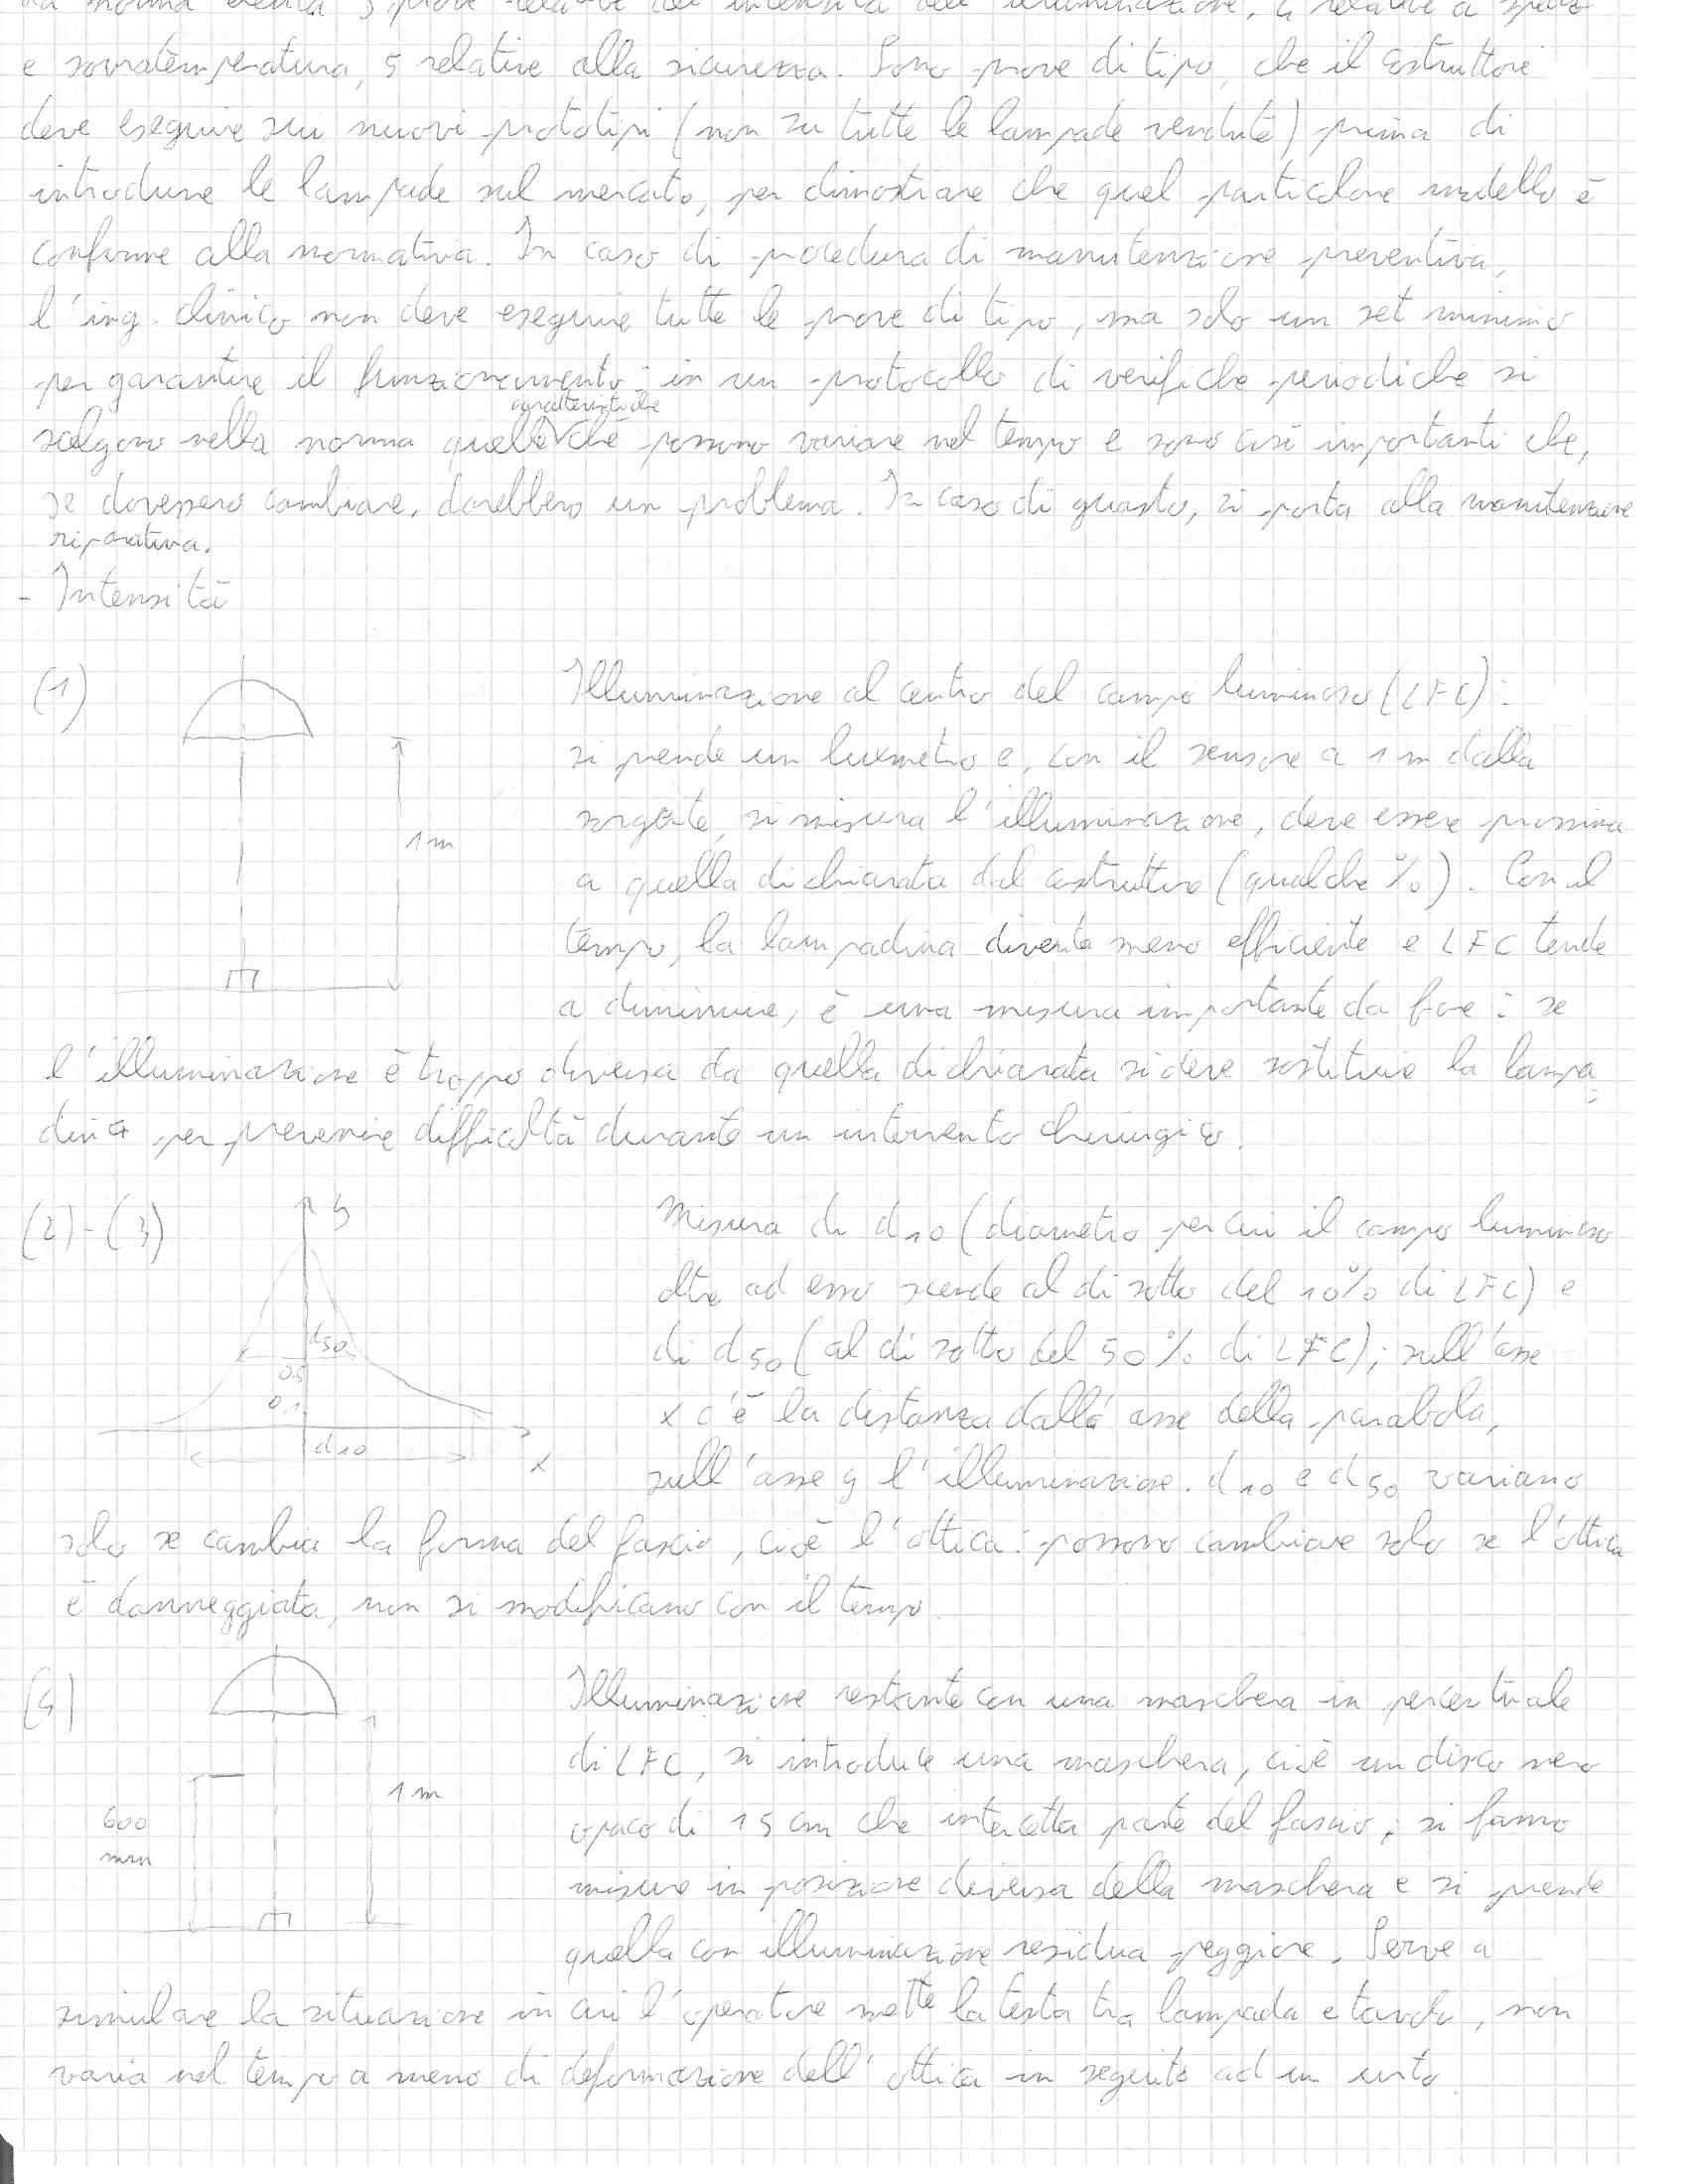 e sovratemperatura, 5 relative alla sicurezza. Sono prove di tipo, che il costruttore
deve eseguire sui nuovi prototipi (non su tutte le lampade vendute) prima di
introdurre le lampade sul mercato, per dimostrare che quel particolare modello è
conforme alla normativa. In caso di procedura di manutenzione preventiva,
l'ing. clinico non deve eseguire tutte le prove di tipo, ma solo un set minimo
per garantire il funzionamento: in un protocollo di verifiche periodiche si
caratteristiche
scelgono nella norma quelle che possono variare nel tempo e sono così importanti che,
se dovessero cambiare, darebbero un problema. In caso di guasto, si porta alla manutenzione
riparativa.
- Intensità
(1)
Illuminazione al centro del campo luminoso (LFC):
si prende un luxmetro e, con il sensore a 1 m dalla
sorgente, si misura l'illuminazione, deve essere prossima
1 m
a quella dichiarata dal costruttore (qualche %). Con il
tempo, la lampadina diventa meno efficiente e LFC tende
a diminuire, è una misura importante da fare: se
l'illuminazione è troppo diversa da quella dichiarata si deve sostituire la lampa=
dina per prevenire difficoltà durante un intervento chirurgico.
(2)-(3)
y
Misura di d10 (diametro per cui il campo luminoso
oltre ad esso scende al di sotto del 10% di LFC) e
d50
di d50 (al di sotto del 50% di LFC); sull'asse
0.5
0.1
x c'è la distanza dall'asse della parabola,
d10
x
sull'asse y l'illuminazione. d10 e d50 variano
solo se cambia la forma del fascio, cioè l'ottica: possono cambiare solo se l'ottica
è danneggiata, non si modificano con il tempo.
(4)
Illuminazione restante con una maschera in percentuale
di LFC, si introduce una maschera, cioè un disco nero
1 m
600
mm
opaco di 15 cm che intercetta parte del fascio; si fanno
misure in posizione diversa della maschera e si prende
quella con illuminazione residua peggiore. Serve a
simulare la situazione in cui l'operatore mette la testa tra lampada e tavolo, non
varia nel tempo a meno di deformazione dell'ottica in seguito ad un urto.